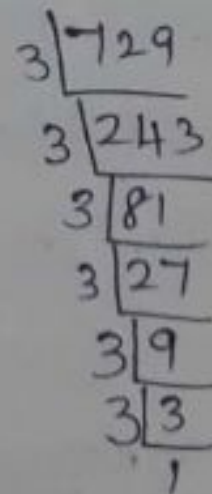 3 729
3 243
3 81
3 27
3 9
3 3
1